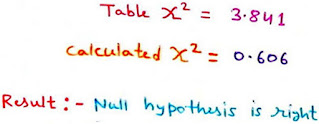 Table X² = 3.841
Calculated X² = 0.606
Result :- Null hypothesis is right